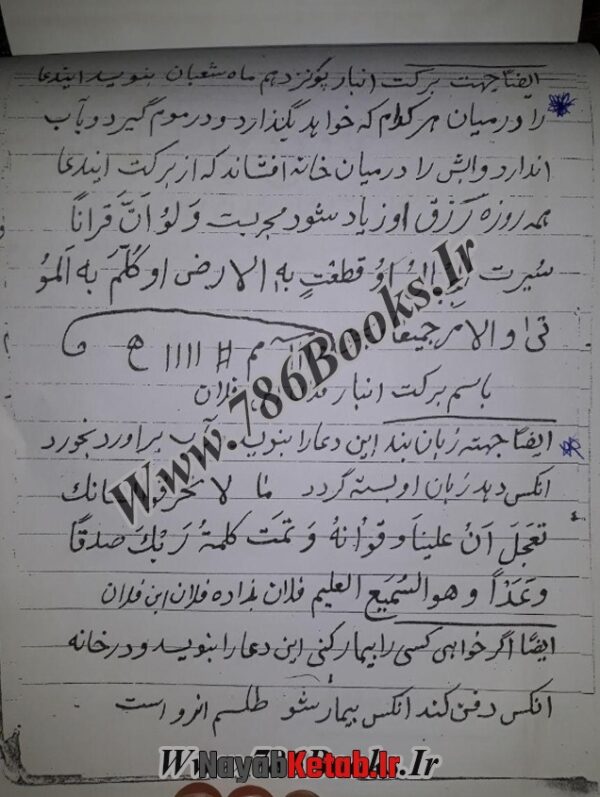 ایضًا جهت برکت انبار پونزدهم ماه شعبان بنویسد ایندعا
را در میان هر کدام که خواهد بگذارد و در موم گیرد و بآب
اندازد و آبش را در میان خانه افشاند که از برکت ایندعا
همه روزه رزق او زیاد شود مجربست وَلَو اَنَّ قراناً
سُیرت اوُ قطعَتِ بِهِ الارض او کُلِّمَ به اَلمَوُ
تیٰ او الامر جمیعاً
باسم برکت انبار فلان
ایضًا جهته زبان بند این دعا را بنویسد آب براورد بخورد
انکس دهد زبان او بسته گردد لا تحرک لسانك
تعجَل اَنُ علیناَ و قرٰانهُ وَ تمَت کلمهُ رَبكَ صدقاً
وَ عَدَلاً وَ هو السَمیَع العلیم فلان بن فلان
ایضًا اگر خواهی کسی را بیمار کنی این دعا را بنویسد و در خانه
انکس دفن کند انکس بیمار شو طلسم اینرو است
Www.786Books.Ir
Www.786Books.Ir
NayabKetab.Ir